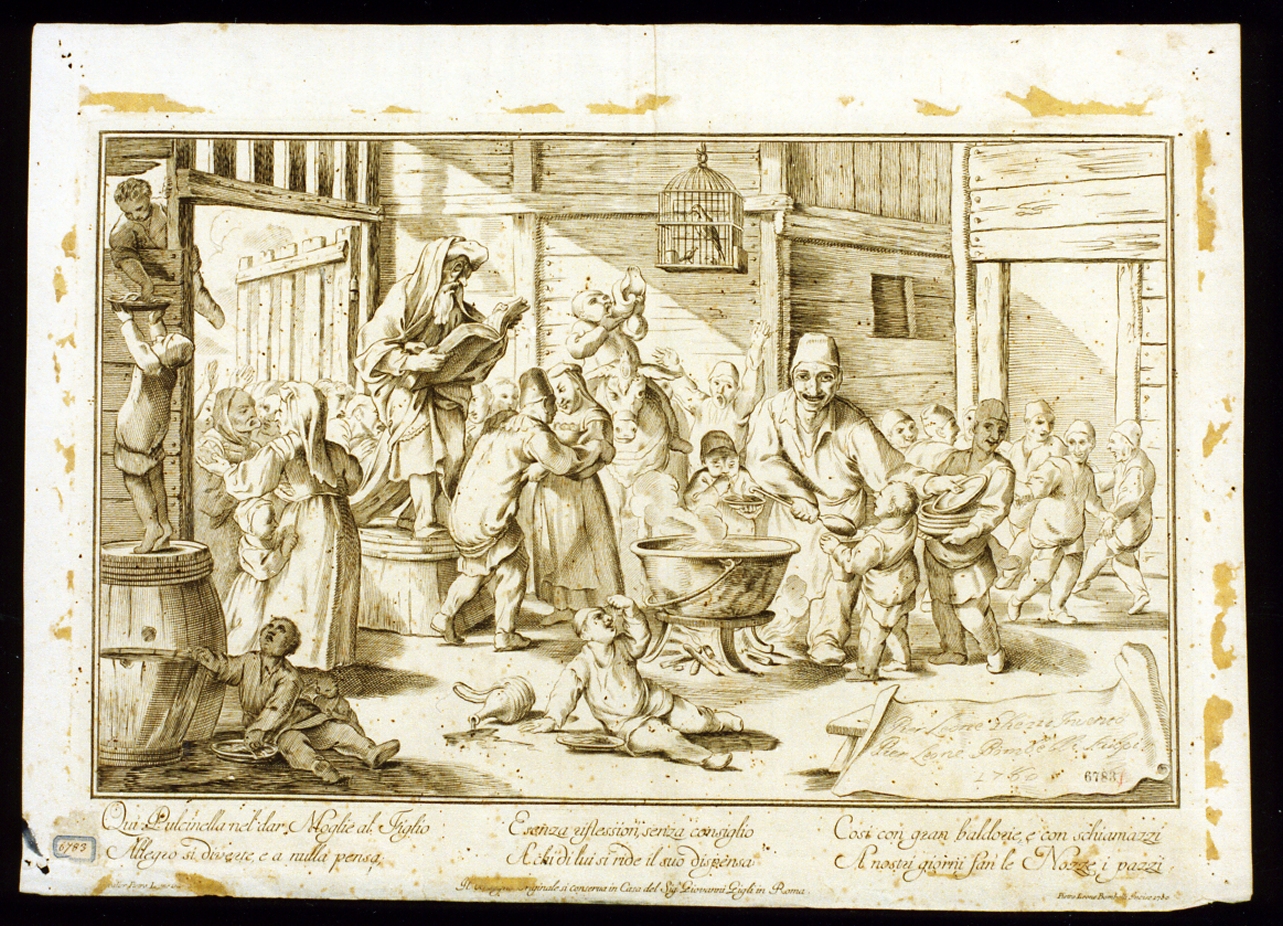 Pier Leone Ghezzi Inventò
Pier Leone Bombelli Sculpì
1760
6783
Qui Pulcinella nel dar Moglie al Figlio
Allegro si diverte, e a nulla pensa,
E senza riflession, senza consiglio
A chi di lui si ride il suo dispensa
Così con gran baldorie, e con schiamazzi
A nostri giorni fan le Nozze i pazzi.
6783
Il originale si conserva in Casa del Sig. Giovanni Gigli in Roma
Pietro Leone Bombelli Incise 1760